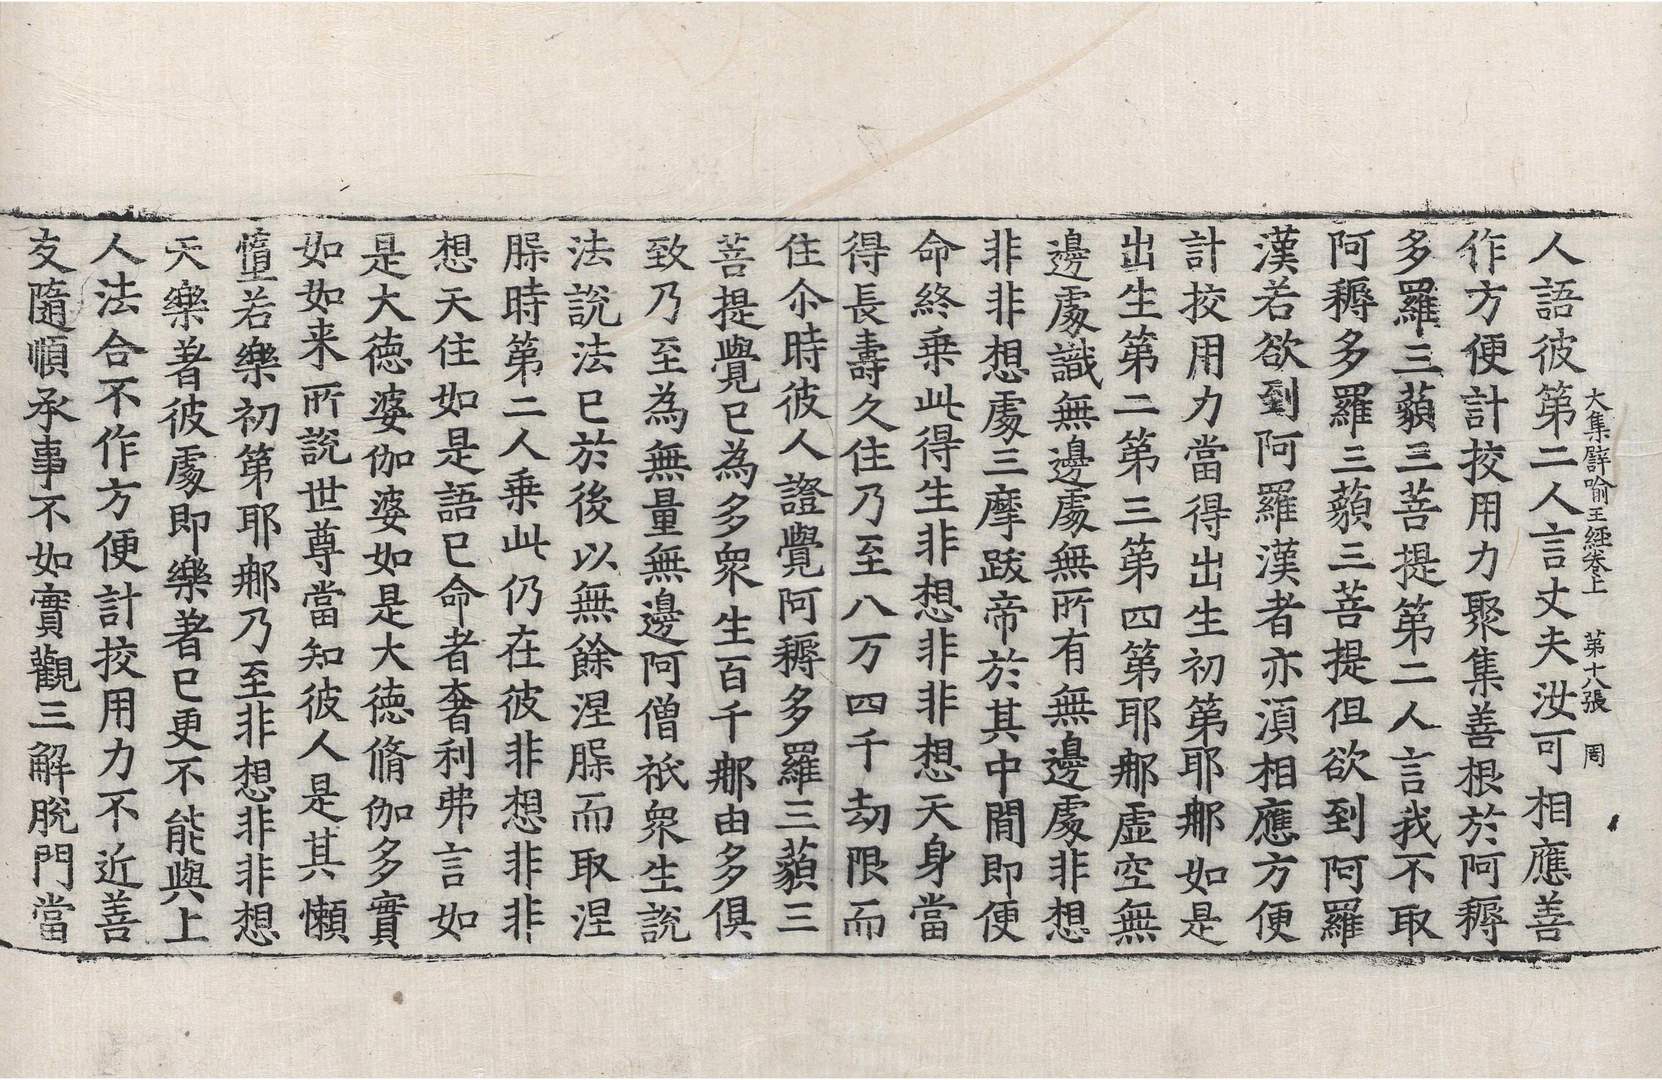 大集譬喻王經卷上　第十八張　周
人語彼第二人言丈夫汝可相應善
作方便計挍用力聚集善根於阿耨
多羅三藐三菩提第二人言我不取
阿耨多羅三藐三菩提但欲到阿羅
漢若欲到阿羅漢者亦湏相應方便
計挍用力當得出生初第耶郍如是
出生第二第三第四第耶郍虛空無
邊處識無邊處無所有無邊處非想
非非想處三摩跋帝於其中間即便
命終乗此得生非想非非想天身當
得長壽久住乃至八万四千劫限而
住尒時彼人證覺阿耨多羅三藐三
菩提覺已為多衆生百千郍由多俱
致乃至為無量無邊阿僧祇衆生說
法說法已於後以無餘涅槃而取涅
槃時第二人乗此仍在彼非想非非
想天住如是語已命者奢利弗言如
是大德婆伽婆如是大德脩伽多實
如如来所說世尊當知彼人是其懶
墮若樂初第耶郍乃至非想非非想
天樂著彼處即樂著已更不能與上
人法合不作方便計挍用力不近善
友隨順承事不如實觀三解脫門當